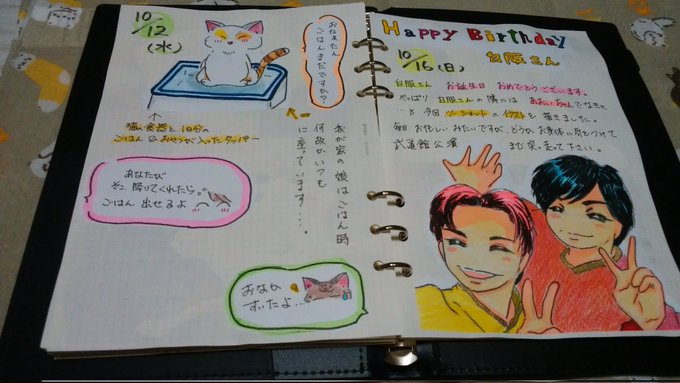 10/12
(水)
おかあたん
ごはんまだですか?
猫の食器と1日分の
ごはん&おやつが入ったタッパー
我が家の娘はごはん時
何故かいつも
に座っています…。
あなたが
そこ降りてくれたら
ごはん出せるよ
おなか
すいたよ…
Happy Birthday
10/16(日)
白阪さん
白阪さん お誕生日 おめでとうございます。
やっぱり 白阪さんの隣には
…と今回 ツーショットのイラストを描きました。
毎日お忙しいみたいですが、どうかお身体に気をつけて
武道館公演 まで突っ走って下さい。